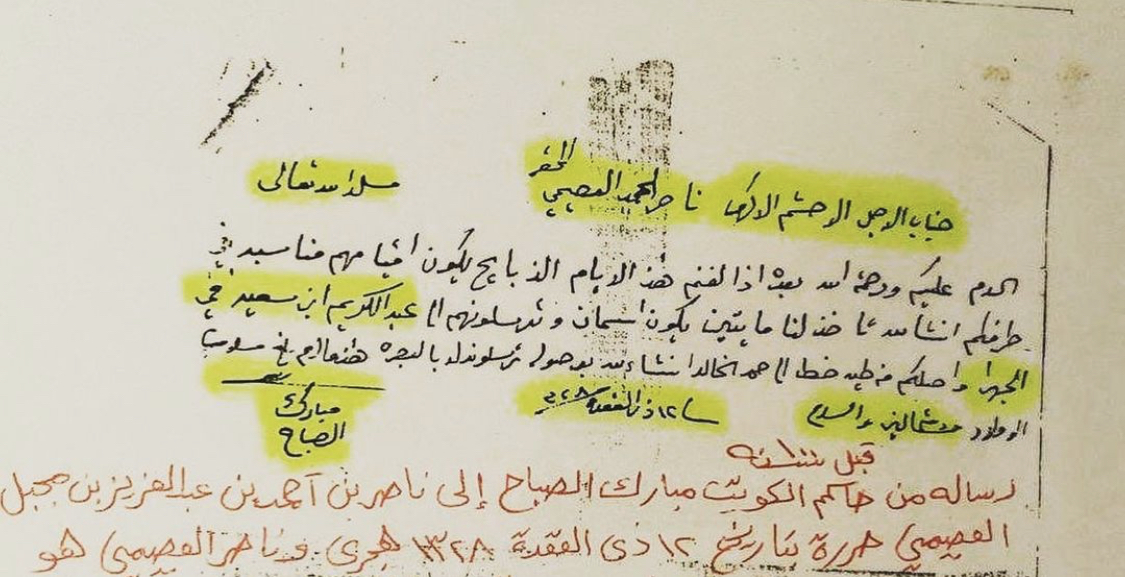 المحترم
جناب الاجل الاحشم الاكرم ناصر الحمد العصيمي سلمه الله تعالى
السلام عليكم ورحمة الله بعده اذا الغنم هذه الايام الذبايح يكون اقيامهم مناسبه في
طرفكم انشا الله تاخذ لنا مايتين يكون اسمان وترسلونهم الى عبدالكريم ابن سعيد في
الجهرا واصلكم من طيه خط الى حمد الخالد انشاء الله بوصوله ترسلونه له بالبصره هذا مالزم بلغ سلامنا
الاولاد والسلام
١٢ ذي القعدة ٣٢٨
مبارك
الصباح
قبل سنة
رساله من حاكم الكويت مبارك الصباح إلى ناصر بن أحمد بن عبدالعزيز بن محبل
العصيمي حررة بتاريخ ١٢ ذي القعدة ١٣٢٨ هجري وناصر العصيمي هو